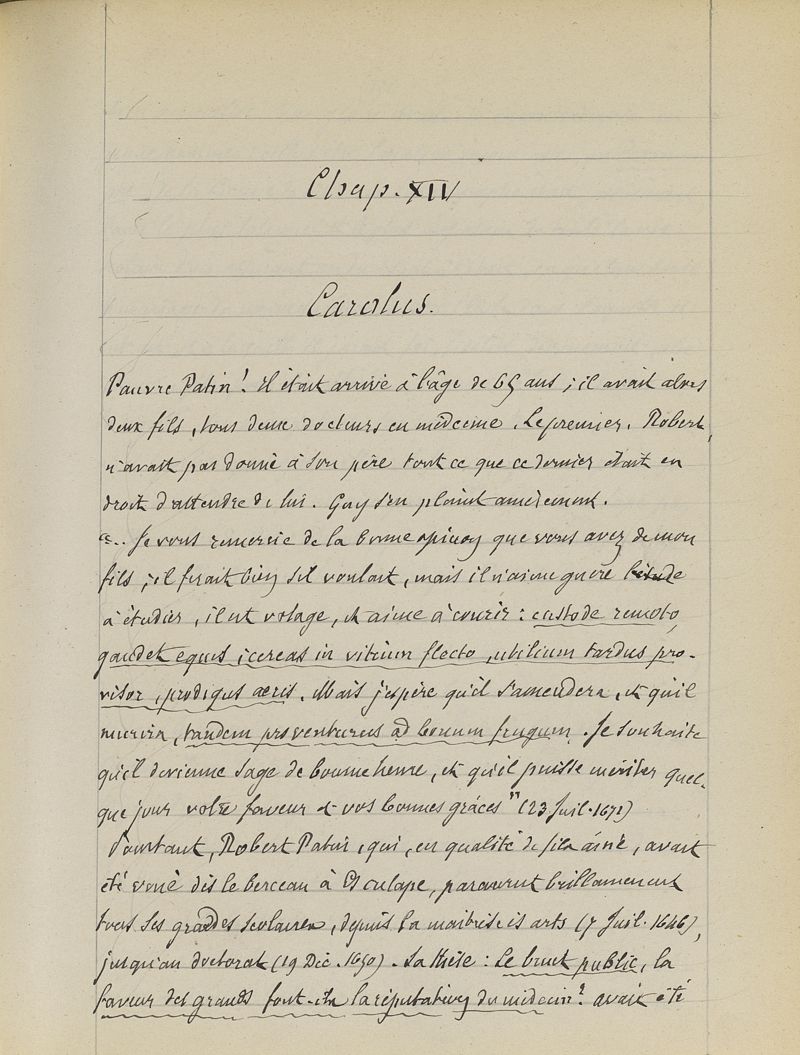 Chap. XIV
Carolus.
Pauvre Patin! Il était arrivé à l'âge de 65 ans ; il avait alors
deux fils, tous deux docteurs en médecine. Le premier, Robert,
n'avait pas donné à son père tout ce que ce dernier était en
droit d'attendre de lui. Guy s'en plaint amèrement.
"... Je vous remercie de la bonne opinion que vous avez de mon
fils ; il ferait bien s'il voulait, mais il n'aime guère
à étudier, il est volage, et aime à courir : custode remoto,
gaudet equis ; cereus in vitium flecto, utilium tardus pro-
visor, prodigus aeris. Mais j'espère qu'il s'amendera, et qu'il
murira, tandem proventurus ad bonum frugem. Je souhaite
qu'il devienne sage de bonne heure, et qu'il puisse mériter quel-
que jour votre faveur et vos bonnes grâces" (23 Juil. 1672)
Pourtant, Robert Patin, qui, en qualité de fils ainé, avait
été voué dès le berceau à Esculape, parcourut brillamment
tous ses grades scolaires, depuis la maitrise ès arts (7 Juil. 1646),
jusqu'au doctorat (19 Déc. 1650). Sa thèse : Le bruit public, la
faveur des grands font-ils la réputation du médecin? avait été